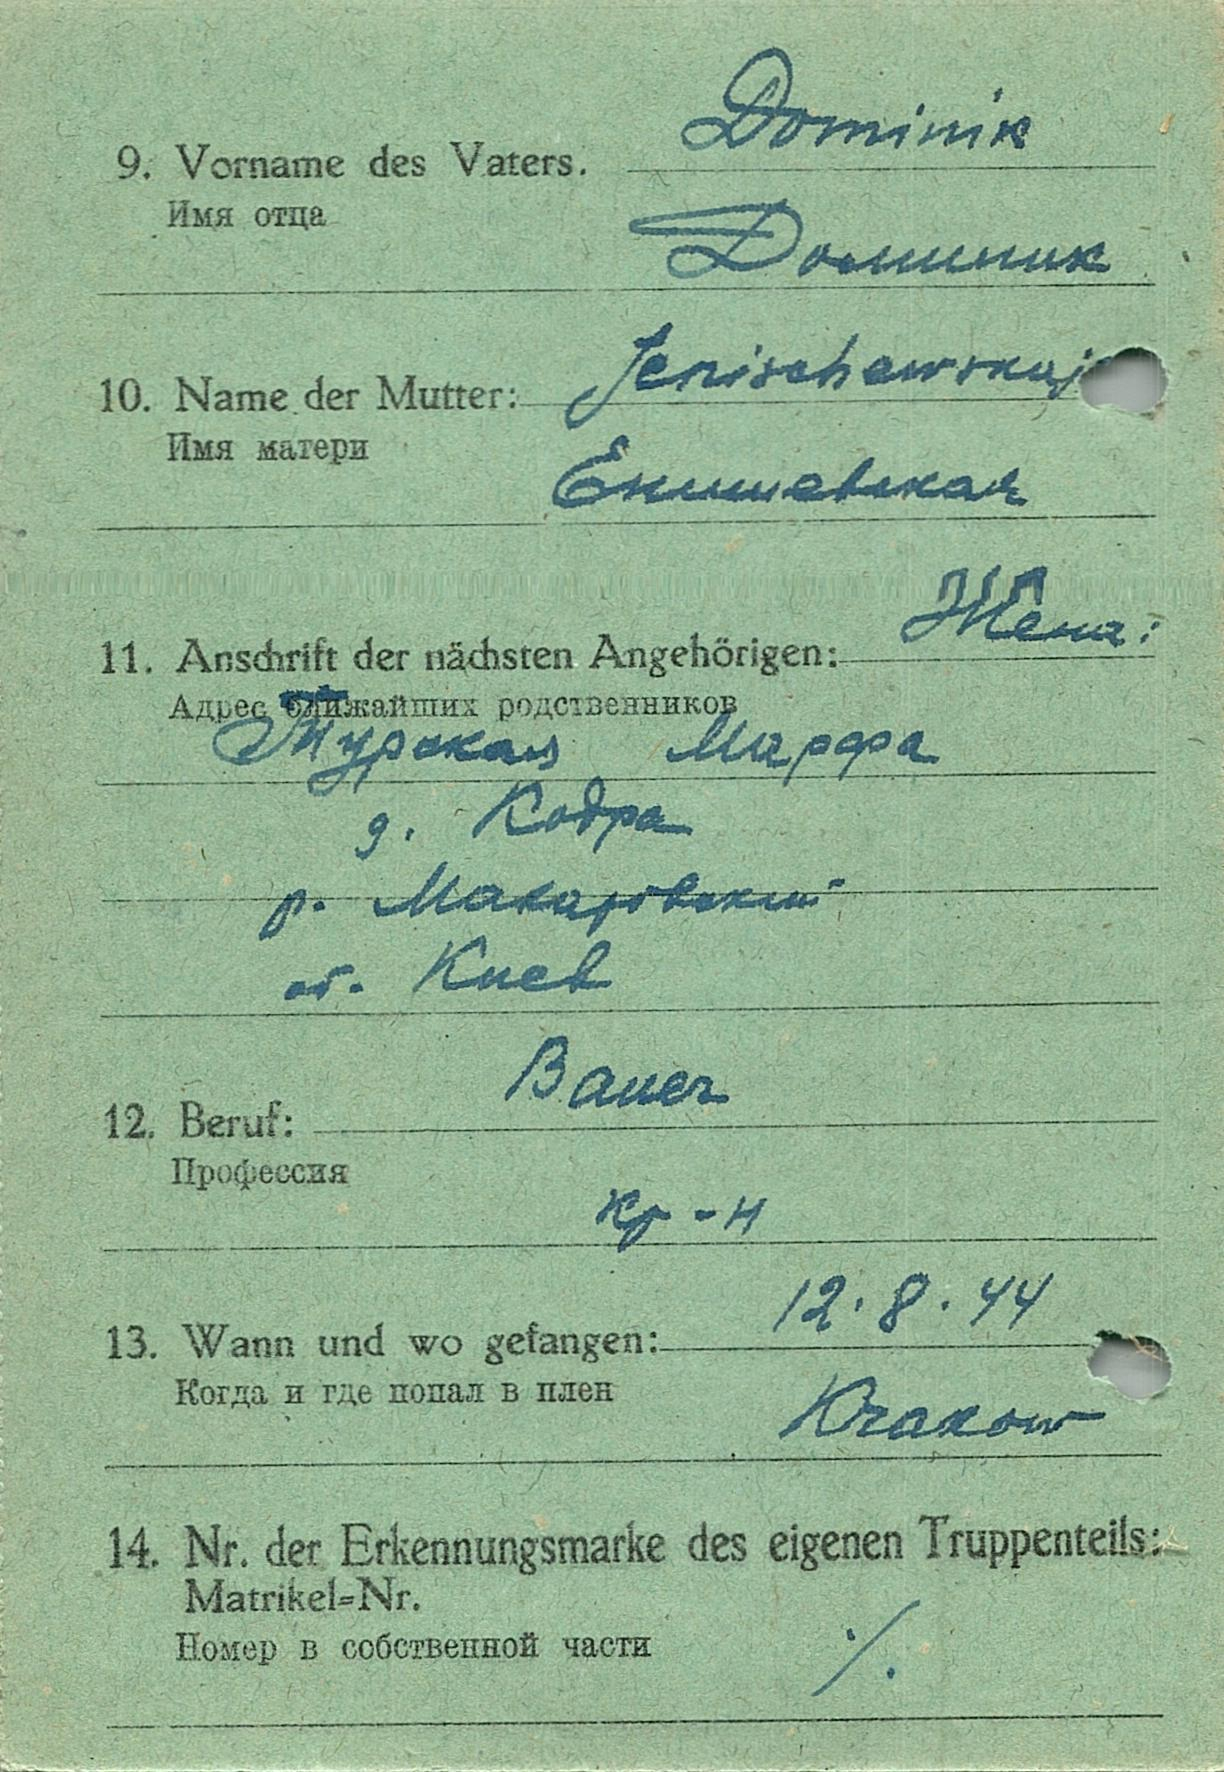 Dominik
9. Vorname des Vaters.
Имя отца
Доминик
Jenischewskaja
10. Name der Mutter:
Имя матери
Енишевская
Жена:
11. Anschrift der nächsten Angehörigen:
Адрес ближайших родственников
Турская Марфа
д. Кодра
р. Макаровский
об. Киев
Bauer
12. Beruf:
Профессия
кр-н
12.8.44
13. Wann und wo gefangen:
Когда и где попал в плен
Krakow
14. Nr. der Erkennungsmarke des eigenen Truppenteils:
Matrikel=Nr.
Номер в собственной части
·/.